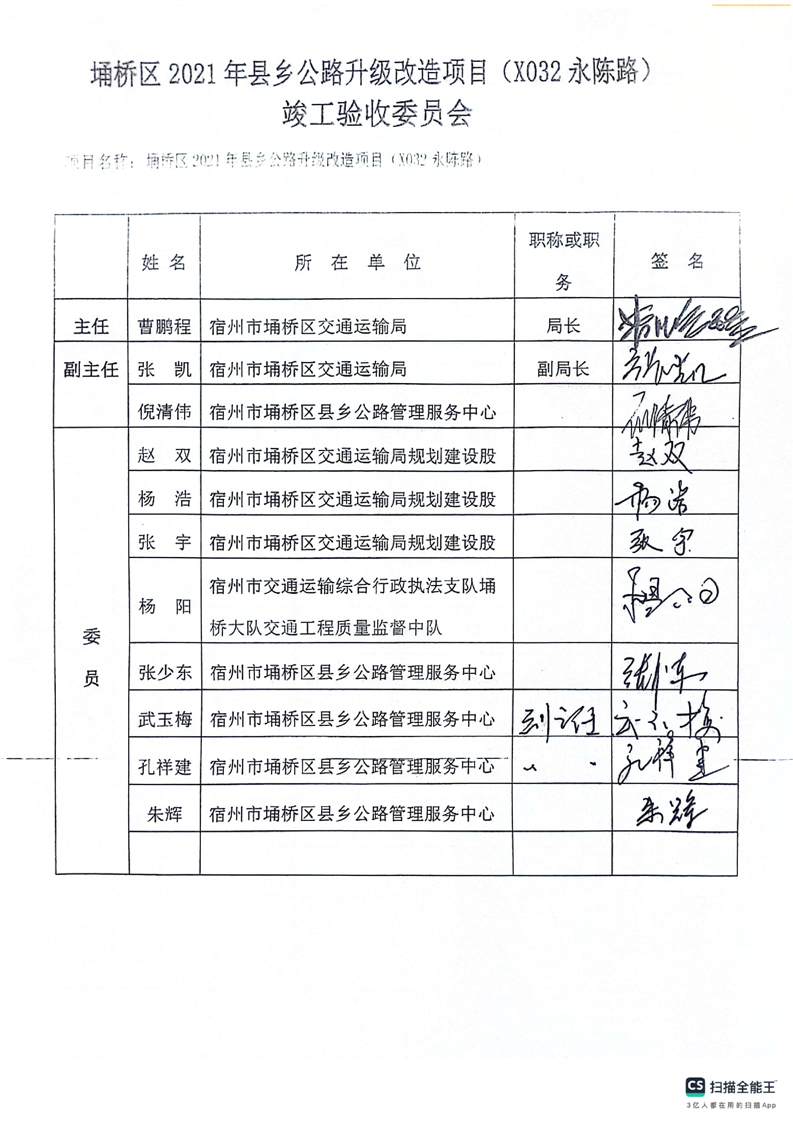 埇桥区 2021 年县乡公路升级改造项目（X032 永陈路）
竣工验收委员会
项目名称：埇桥区 2021 年县乡公路升级改造项目（X032 永陈路）
姓名 所在单位 职称或职务 签名
主任 曹鹏程 宿州市埇桥区交通运输局 局长
副主任 张凯 宿州市埇桥区交通运输局 副局长
倪清伟 宿州市埇桥区县乡公路管理服务中心 倪清伟
委员
赵双 宿州市埇桥区交通运输局规划建设股 赵双
杨浩 宿州市埇桥区交通运输局规划建设股 杨浩
张宇 宿州市埇桥区交通运输局规划建设股 张宇
杨阳 宿州市交通运输综合行政执法支队埇
桥大队交通工程质量监督中队
张少东 宿州市埇桥区县乡公路管理服务中心
武玉梅 宿州市埇桥区县乡公路管理服务中心 副主任 武玉梅
孔祥建 宿州市埇桥区县乡公路管理服务中心 孔祥建
朱辉 宿州市埇桥区县乡公路管理服务中心 朱辉
CS 扫描全能王
3亿人都在用的扫描App